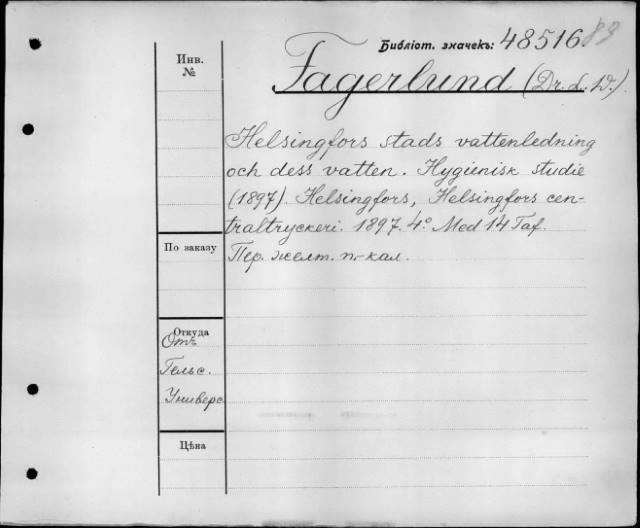 Библіот. значекъ: 48516 89
Инв.
№
Fagerlund (Dr. L. W.).
Helsingfors stads vattenledning
och dess vatten. Hygienisk studie
(1897). Helsingfors, Helsingfors cen-
traltryckeri. 1897. 4º. Med 14 Taf.
По заказу
Пер. желт. п.-кал.
Откуда
Отъ
Гельс.
Универс.
Цѣна